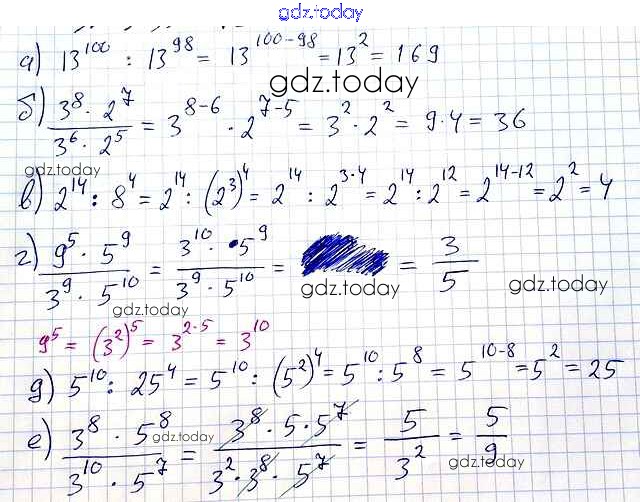 gdz.today
а) 13¹⁰⁰ : 13⁹⁸ = 13¹⁰⁰⁻⁹⁸ = 13² = 169
gdz.today
б) (3⁸ · 2⁷)/(3⁶ · 2⁵) = 3⁸⁻⁶ · 2⁷⁻⁵ = 3² · 2² = 9 · 4 = 36
gdz.today
в) 2¹⁴ : 8⁴ = 2¹⁴ : (2³)⁴ = 2¹⁴ : 2³·⁴ = 2¹⁴ : 2¹² = 2¹⁴⁻¹² = 2² = 4
г) (9⁵ · 5⁹)/(3⁹ · 5¹⁰) = (3¹⁰ · 5⁹)/(3⁹ · 5¹⁰) = = 3/5
gdz.today gdz.today gdz.today
9⁵ = (3²)⁵ = 3²·⁵ = 3¹⁰
д) 5¹⁰ : 25⁴ = 5¹⁰ : (5²)⁴ = 5¹⁰ : 5⁸ = 5¹⁰⁻⁸ = 5² = 25
е) (3⁸ · 5⁸)/(3¹⁰ · 5⁷) = (3⁸ · 5 · 5⁷)/(3² · 3⁸ · 5⁷) = 5/3² = 5/9
gdz.today gdz.today